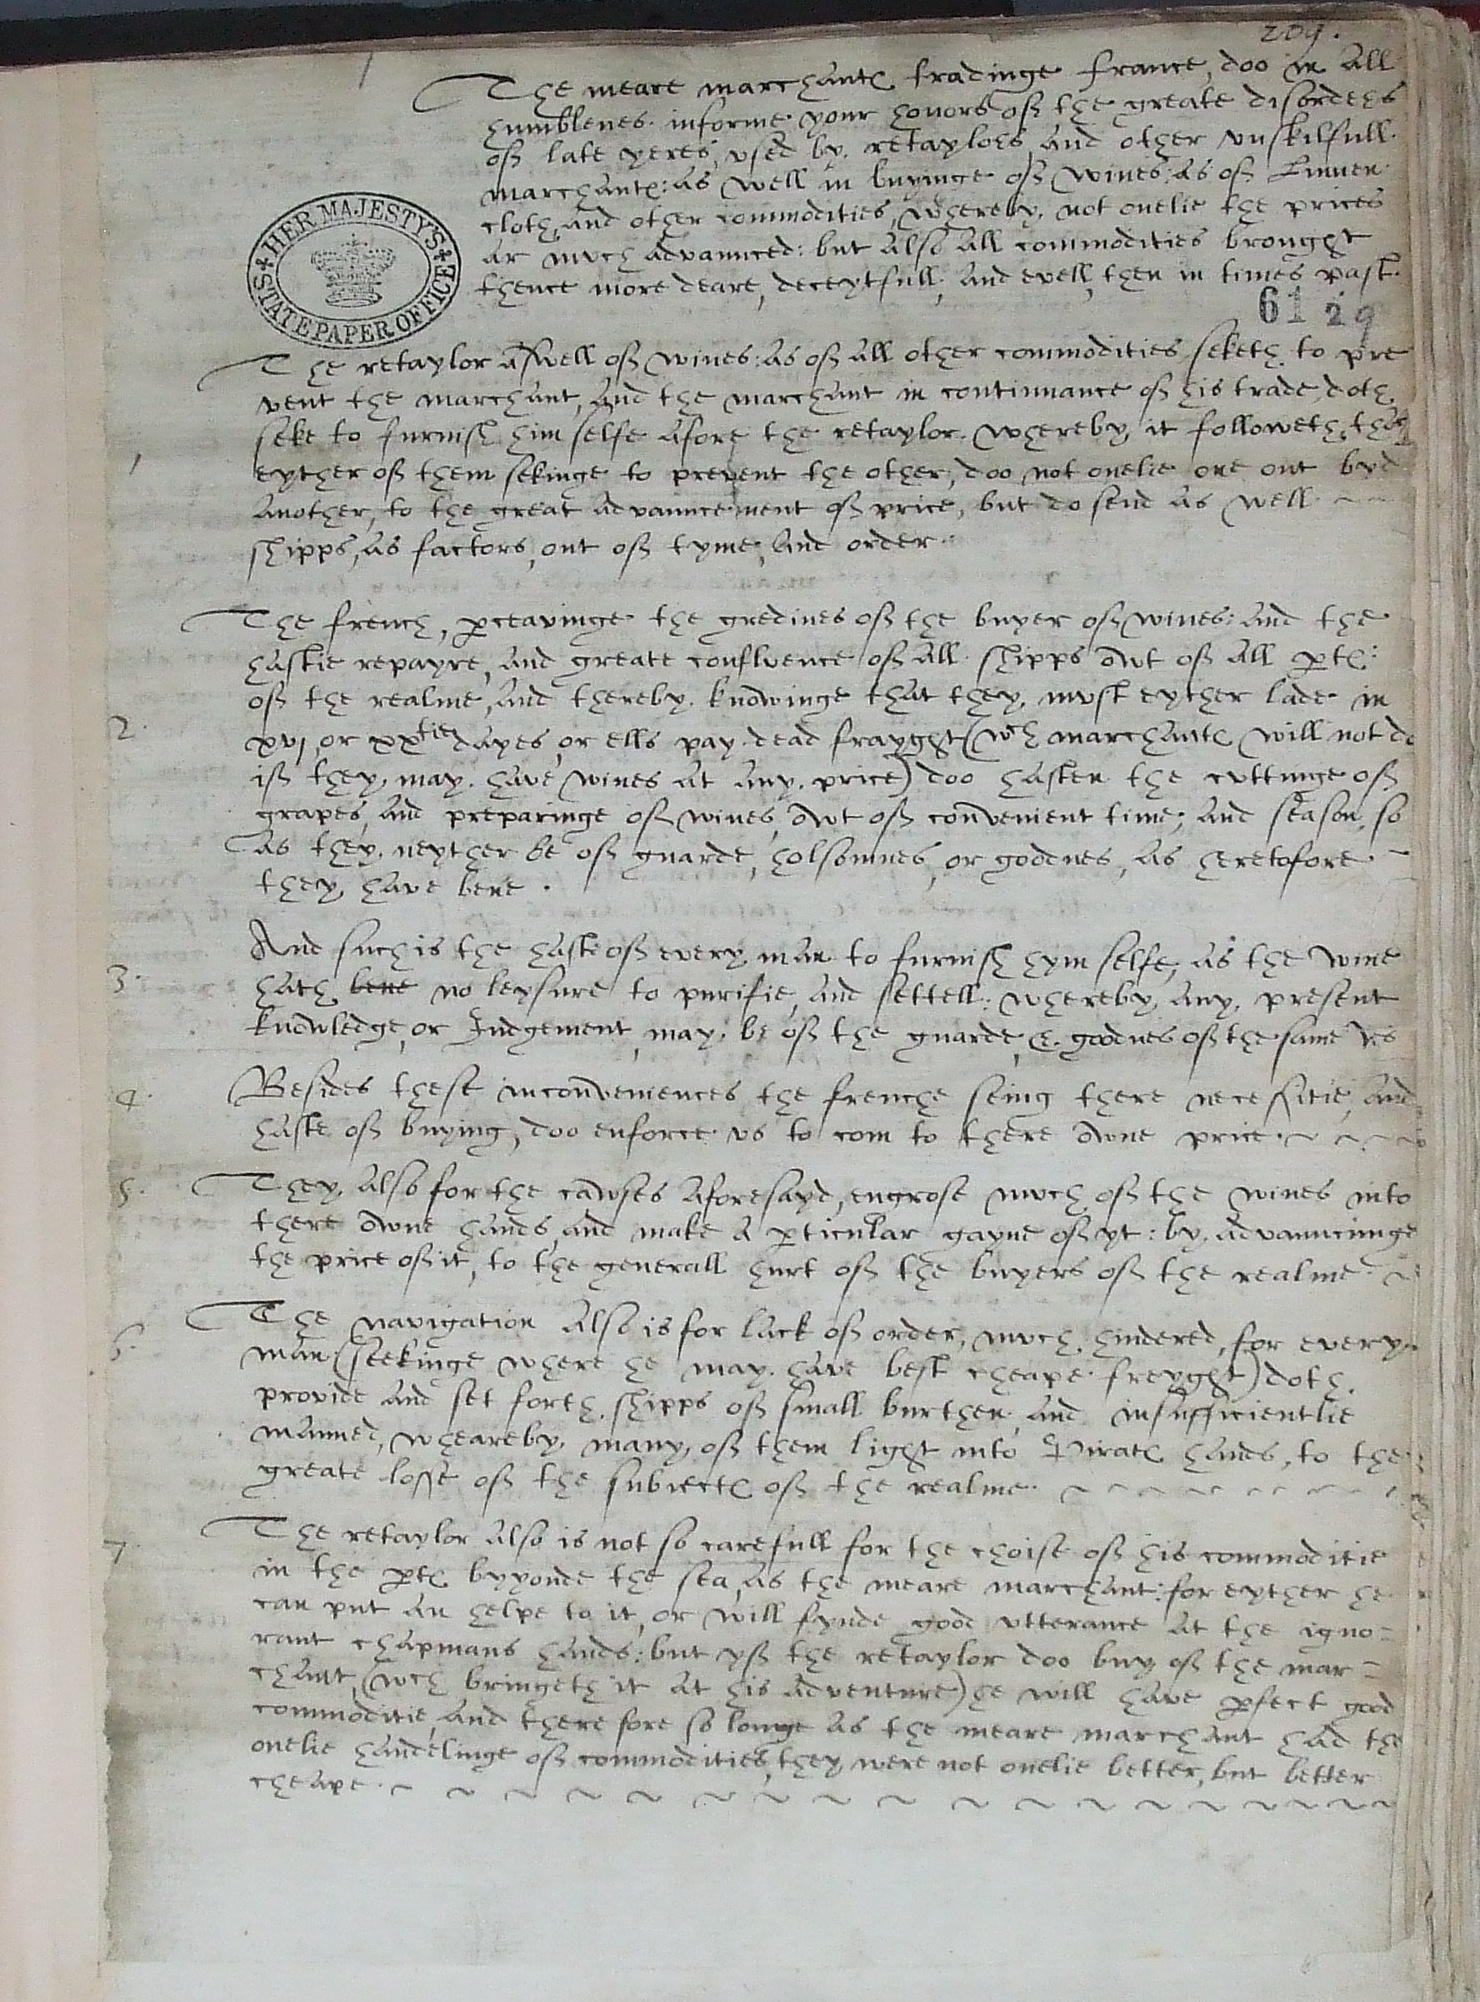 209.
The meare marchantes tradinge france, doo in all
humblenes informe your honors of the greate disorders
of late yeres, used by retaylors and other unskilfull
marchantes: as well in buyinge of wines: as of Linnen
cloth, and other commodities, whereby, not onelie the prices
ar much advaunced: but also all commodities brought
thence more deare, deceytfull, and evell, then in times past.
HER MAJESTY'S
STATE PAPER OFFICE
61 29
The retaylor aswell of wines: as of all other commodities seketh to pre
vent the marchant, and the marchant in continuance of his trade, doth
seke to furnish him selfe afore the retaylor. whereby, it followeth, that
1
eyther of them sekinge to prevent the other, doo not onelie one out byd
another, to the great advauncement of price, but do send as well
shipps, as factors, out of tyme, and order.
The french, perceavinge the gredines of the buyer of wines: and the
hastie repayre, and greate confluence of all shipps owt of all partes
of the realme, and thereby knowinge that they, must eyther lade in
2.
xvj or xxtie dayes, or ells pay dead frayght (wch marchantes will not do
if they may have wines at any price) doo hasten the cuttinge of
grapes, and preparinge of wines, owt of convenient time; and season, so
as they neyther be of guarde, holsomnes, or goodnes, as heretofore
they have bene.
And such is the haste of every man to furnish hym selfe, as the wine
3.
hath bene no leysure to purifie, and settell: whereby any present
knowledge, or Judgement, may be of the guarde, & goodnes of the same
4.
Besides these inconveniences the frenche seing there necessitie, and
haste of buying, doo enforce us to com to there owne price.
5.
They also for the cawses aforesayd, engrose much of the wines into
there owne hands, and make a perticular gayne of yt: by advauncinge
the price of it, to the generall hurt of the buyers of the realme
The navigation also is for lack of order, much hindered, for every
6.
man (seekinge where he may have best cheape freyght) doth
provide and set forth shipps of small burthen and insufficientlie
manned, wheareby many of them light into Pirates hands, to the
greate losse of the subiectes of the realme.
7.
The retaylor also is not so carefull for the choise of his commoditie
in the partes byyonde the sea, as the meare marchant: for eyther he
can put an helpe to it, or will fynde good utterance at the igno=
rant chapmans hands: but yf the retaylor doo buy of the mar=
chant, (wch bringeth it at his adventure) he will have perfect good
commoditie, and therefore so longe as the meare marchant had the
onelie handelinge of commodities, they were not onelie better, but better
cheape.